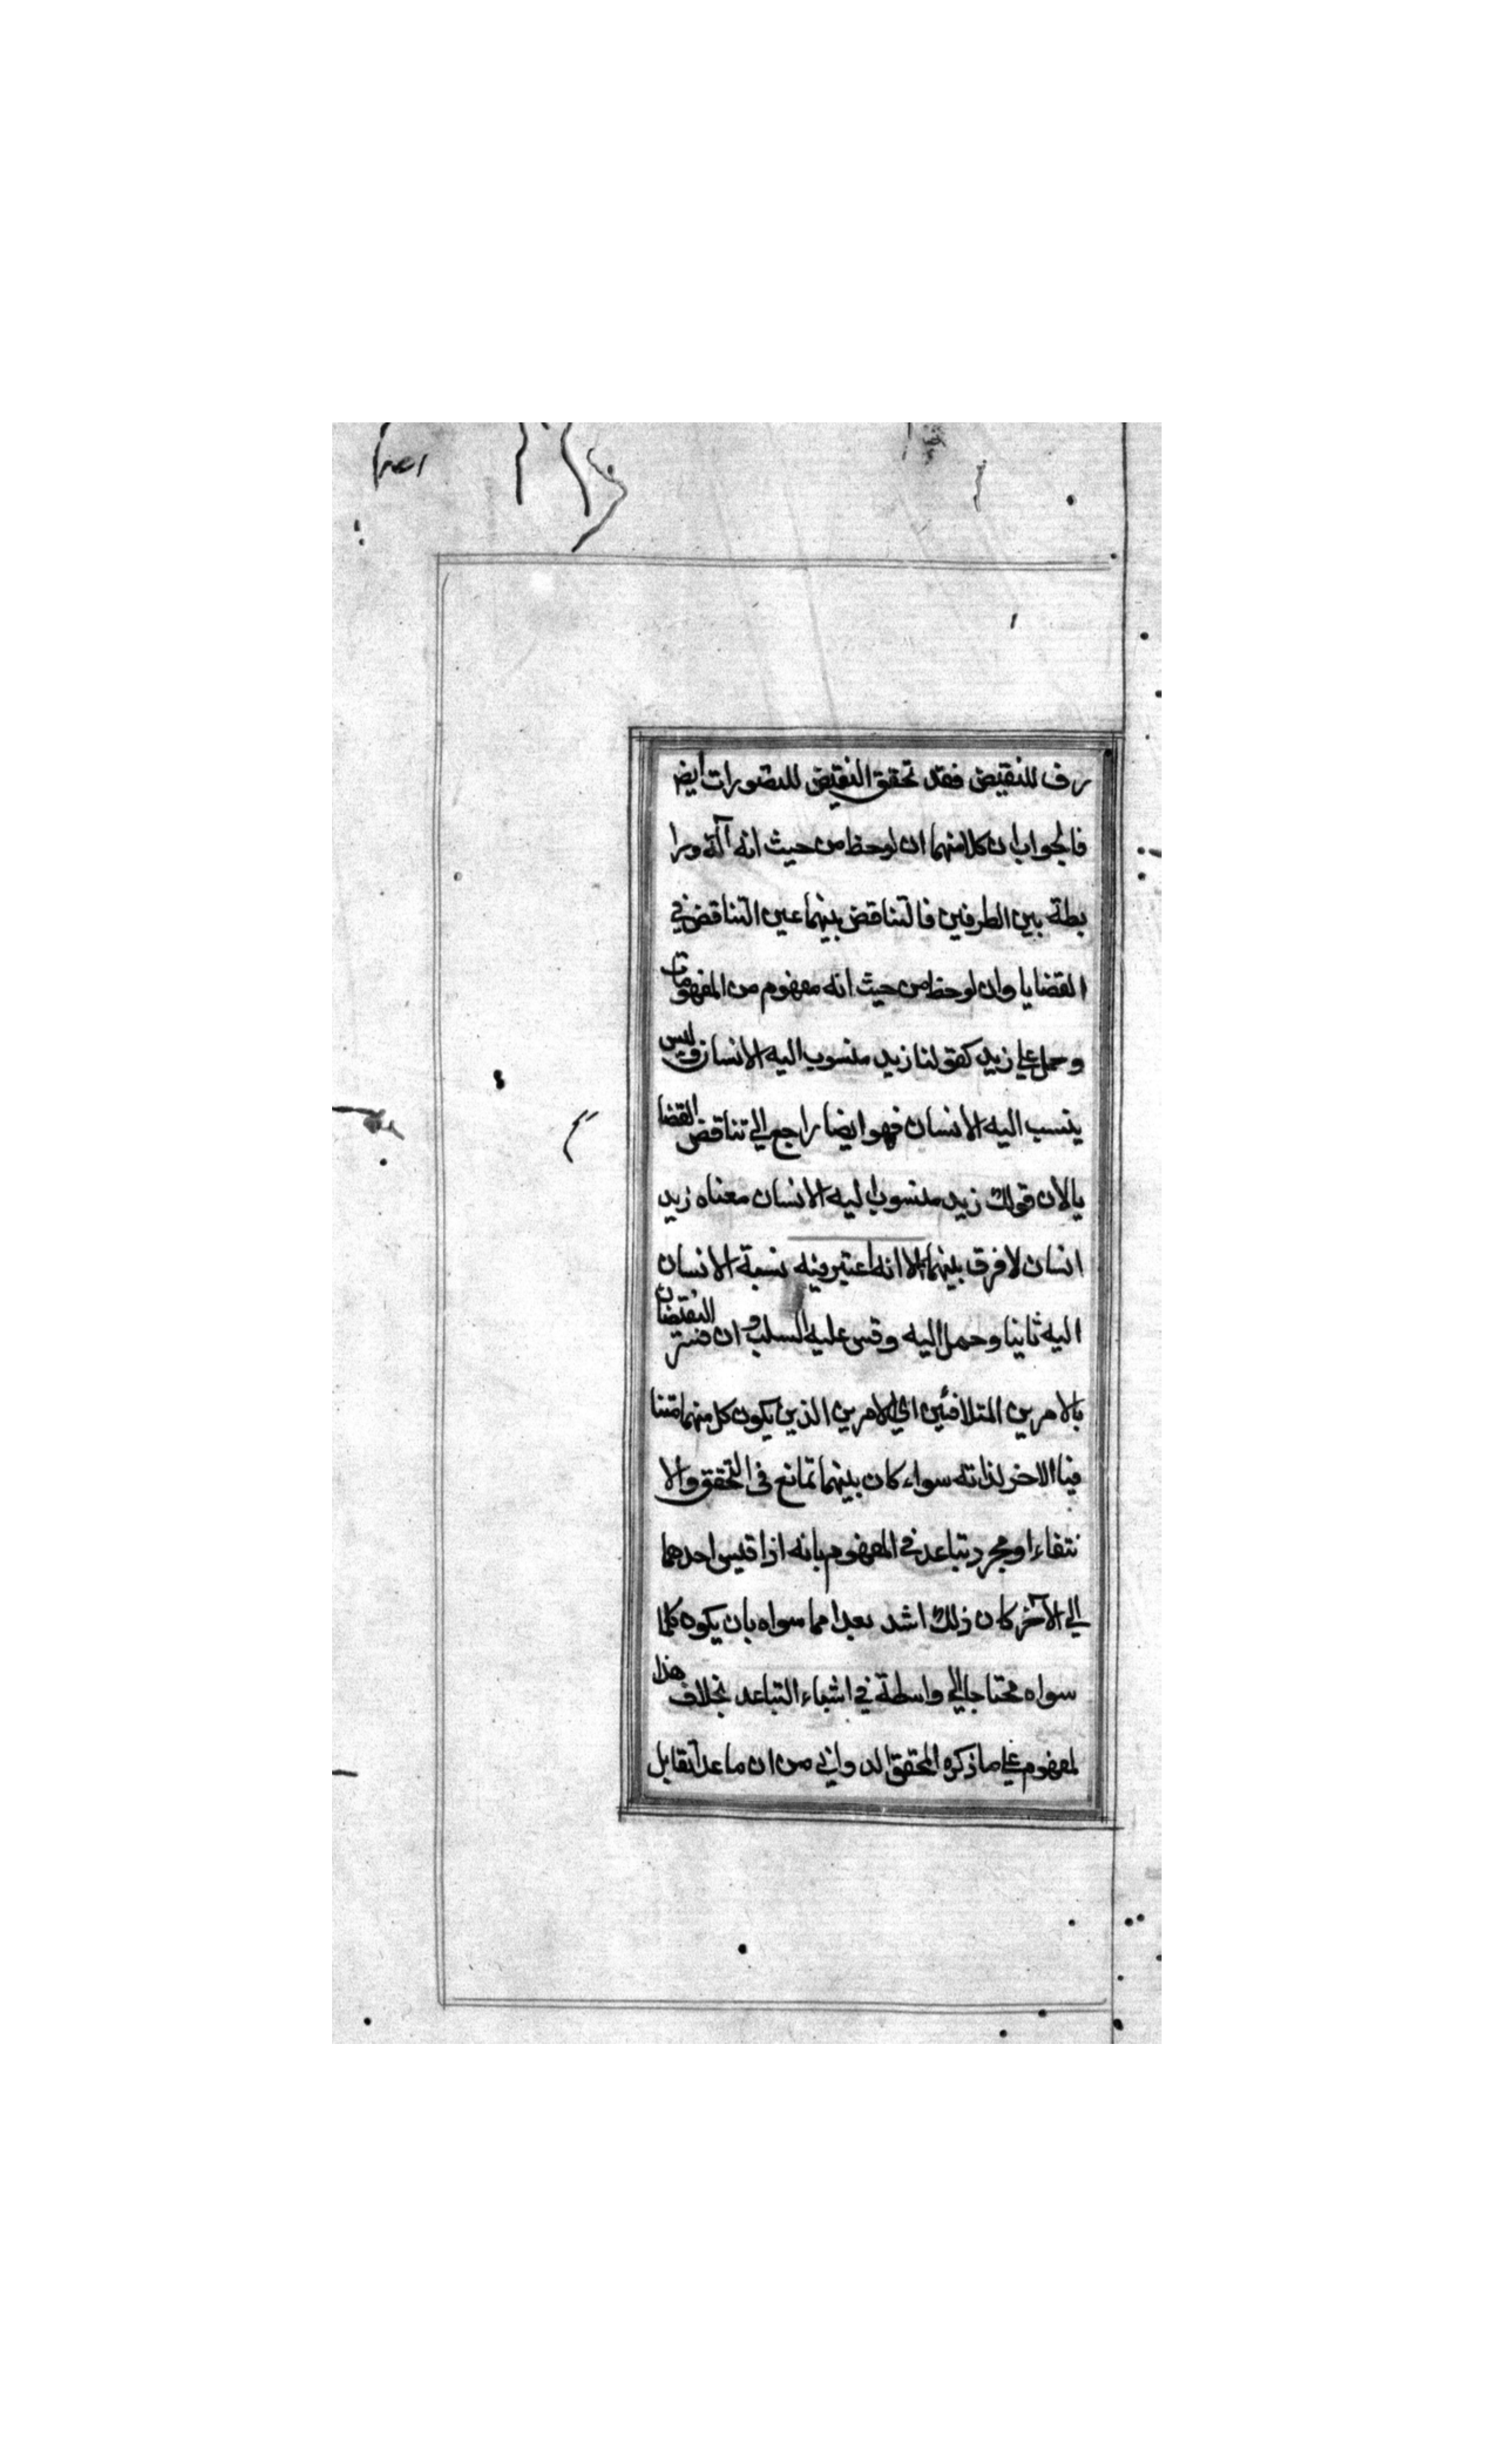 رف للنقيض فقد تحقق النقيض للتصورات ايضا
فالجواب ان كلا منهما ان لوحظ من حيث انه آلة ورا
بطة بين الطرفين فالتناقض بينهما عين التناقض في
القضايا وان لوحظ من حيث انه مفهوم من المفهومات
وحمل على زيد كقولنا زيد منسوب اليه الانسان وليس
ينسب اليه الانسان فهو ايضا راجع الى تناقض القضا
يا لان قولك زيد منسوب اليه الانسان معناه زيد
انسان لا فرق بينهما الا انه اعتبر فيه نسبة الانسان
اليه ثانيا وحمل اليه وقس عليه السلب وان فسر النقيضان
بالامرين المتلافئين اى الامرين الذين يكون كل منهما متنا
فيا الاخر لذاته سواء كان بينهما تمانع في التحقق والا
نتفاء او مجرد تباعد في المفهوم بانه اذا قيس احدهما
الى الآخر كان ذلك اشد بعدا مما سواه بان يكون كلما
سواه محتاجا الى واسطة في اشياء التباعد بخلاف هذا
لمفهوم على ما ذكره المحقق الدواني من ان ما عدا تقابل